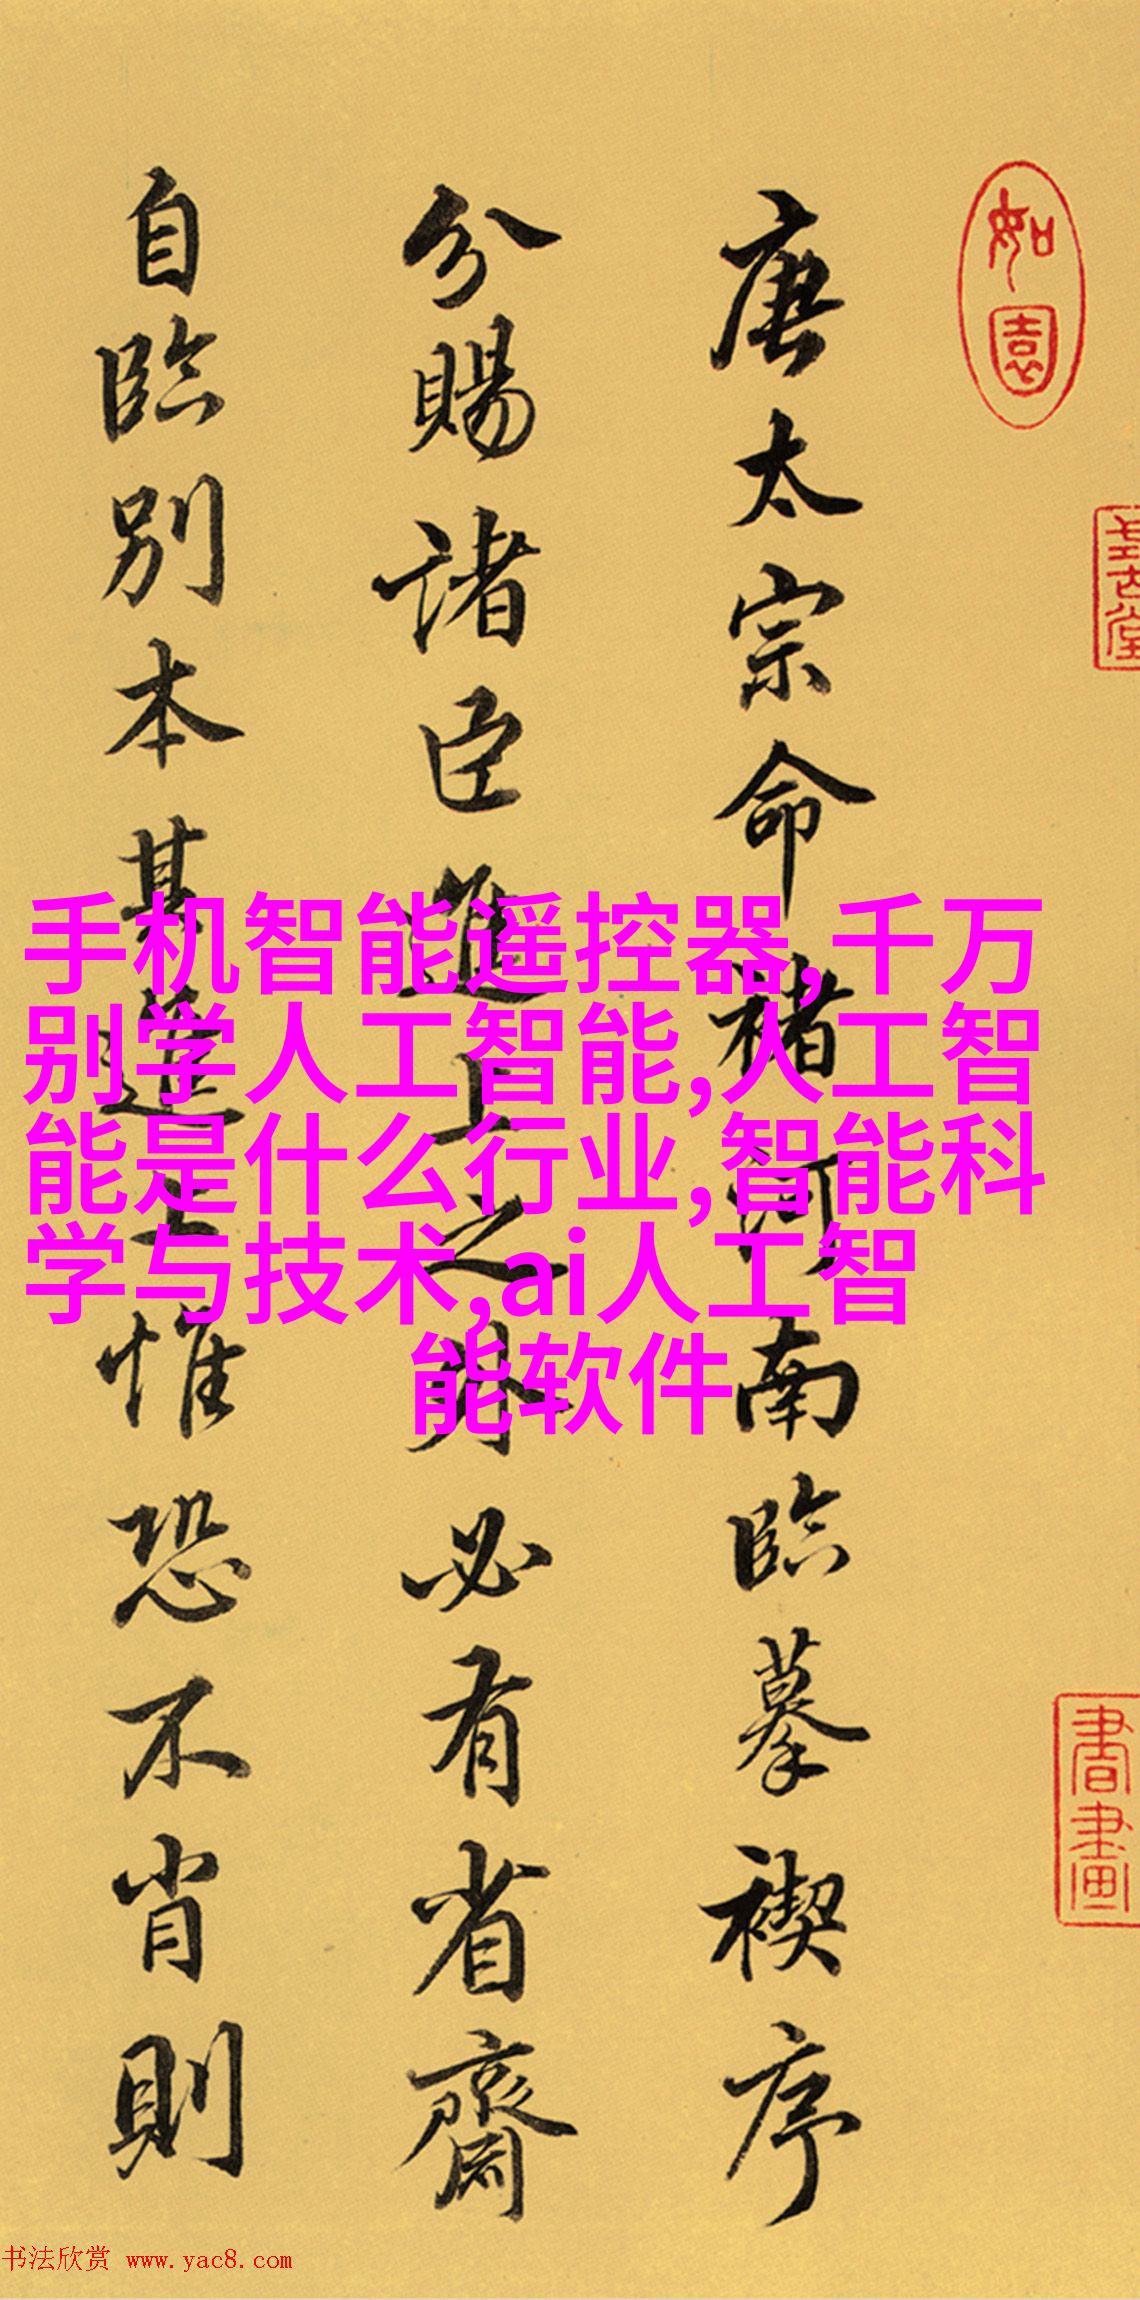 如園
書畫
唐太宗命褚河南臨摹禊序
分賜諸臣進上之必有省齋
自臨別本其進上惟恐不肖則
手机智能遥控器,千万
别学人工智能,人工智
能是什么行业,智能科
学与技术,ai人工智
能软件
书法欣赏 www.yac8.com